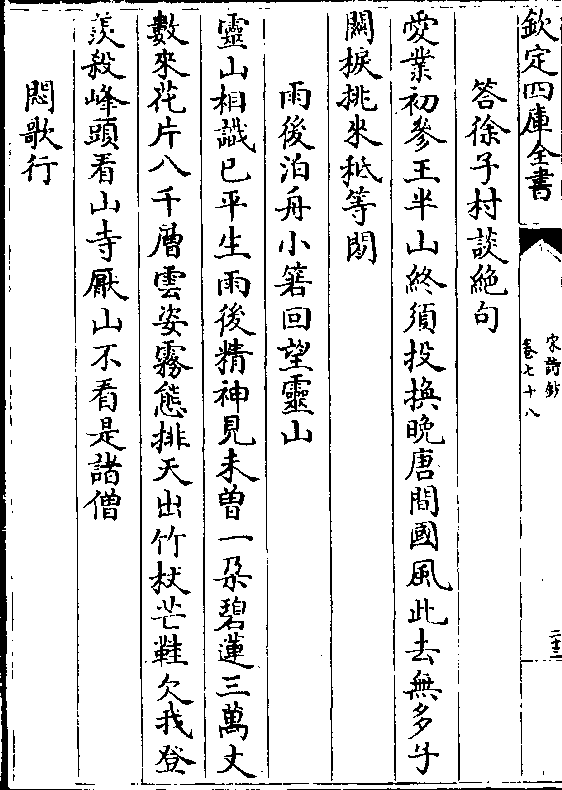 欽定四庫全書
宋詩鈔
卷七十八
二十三
答徐子材談絶句
受業初參王半山終須投換晩唐間國風此去無多子
關捩挑來秪等閒
雨後泊舟小箬回望靈山
靈山相識已平生雨後精神見未曽一朶碧蓮三萬丈
數來花片八千層雲姿霧態排天出竹杖芒鞋欠我登
羨殺峰頭看山寺厭山不看是諸僧
悶歌行